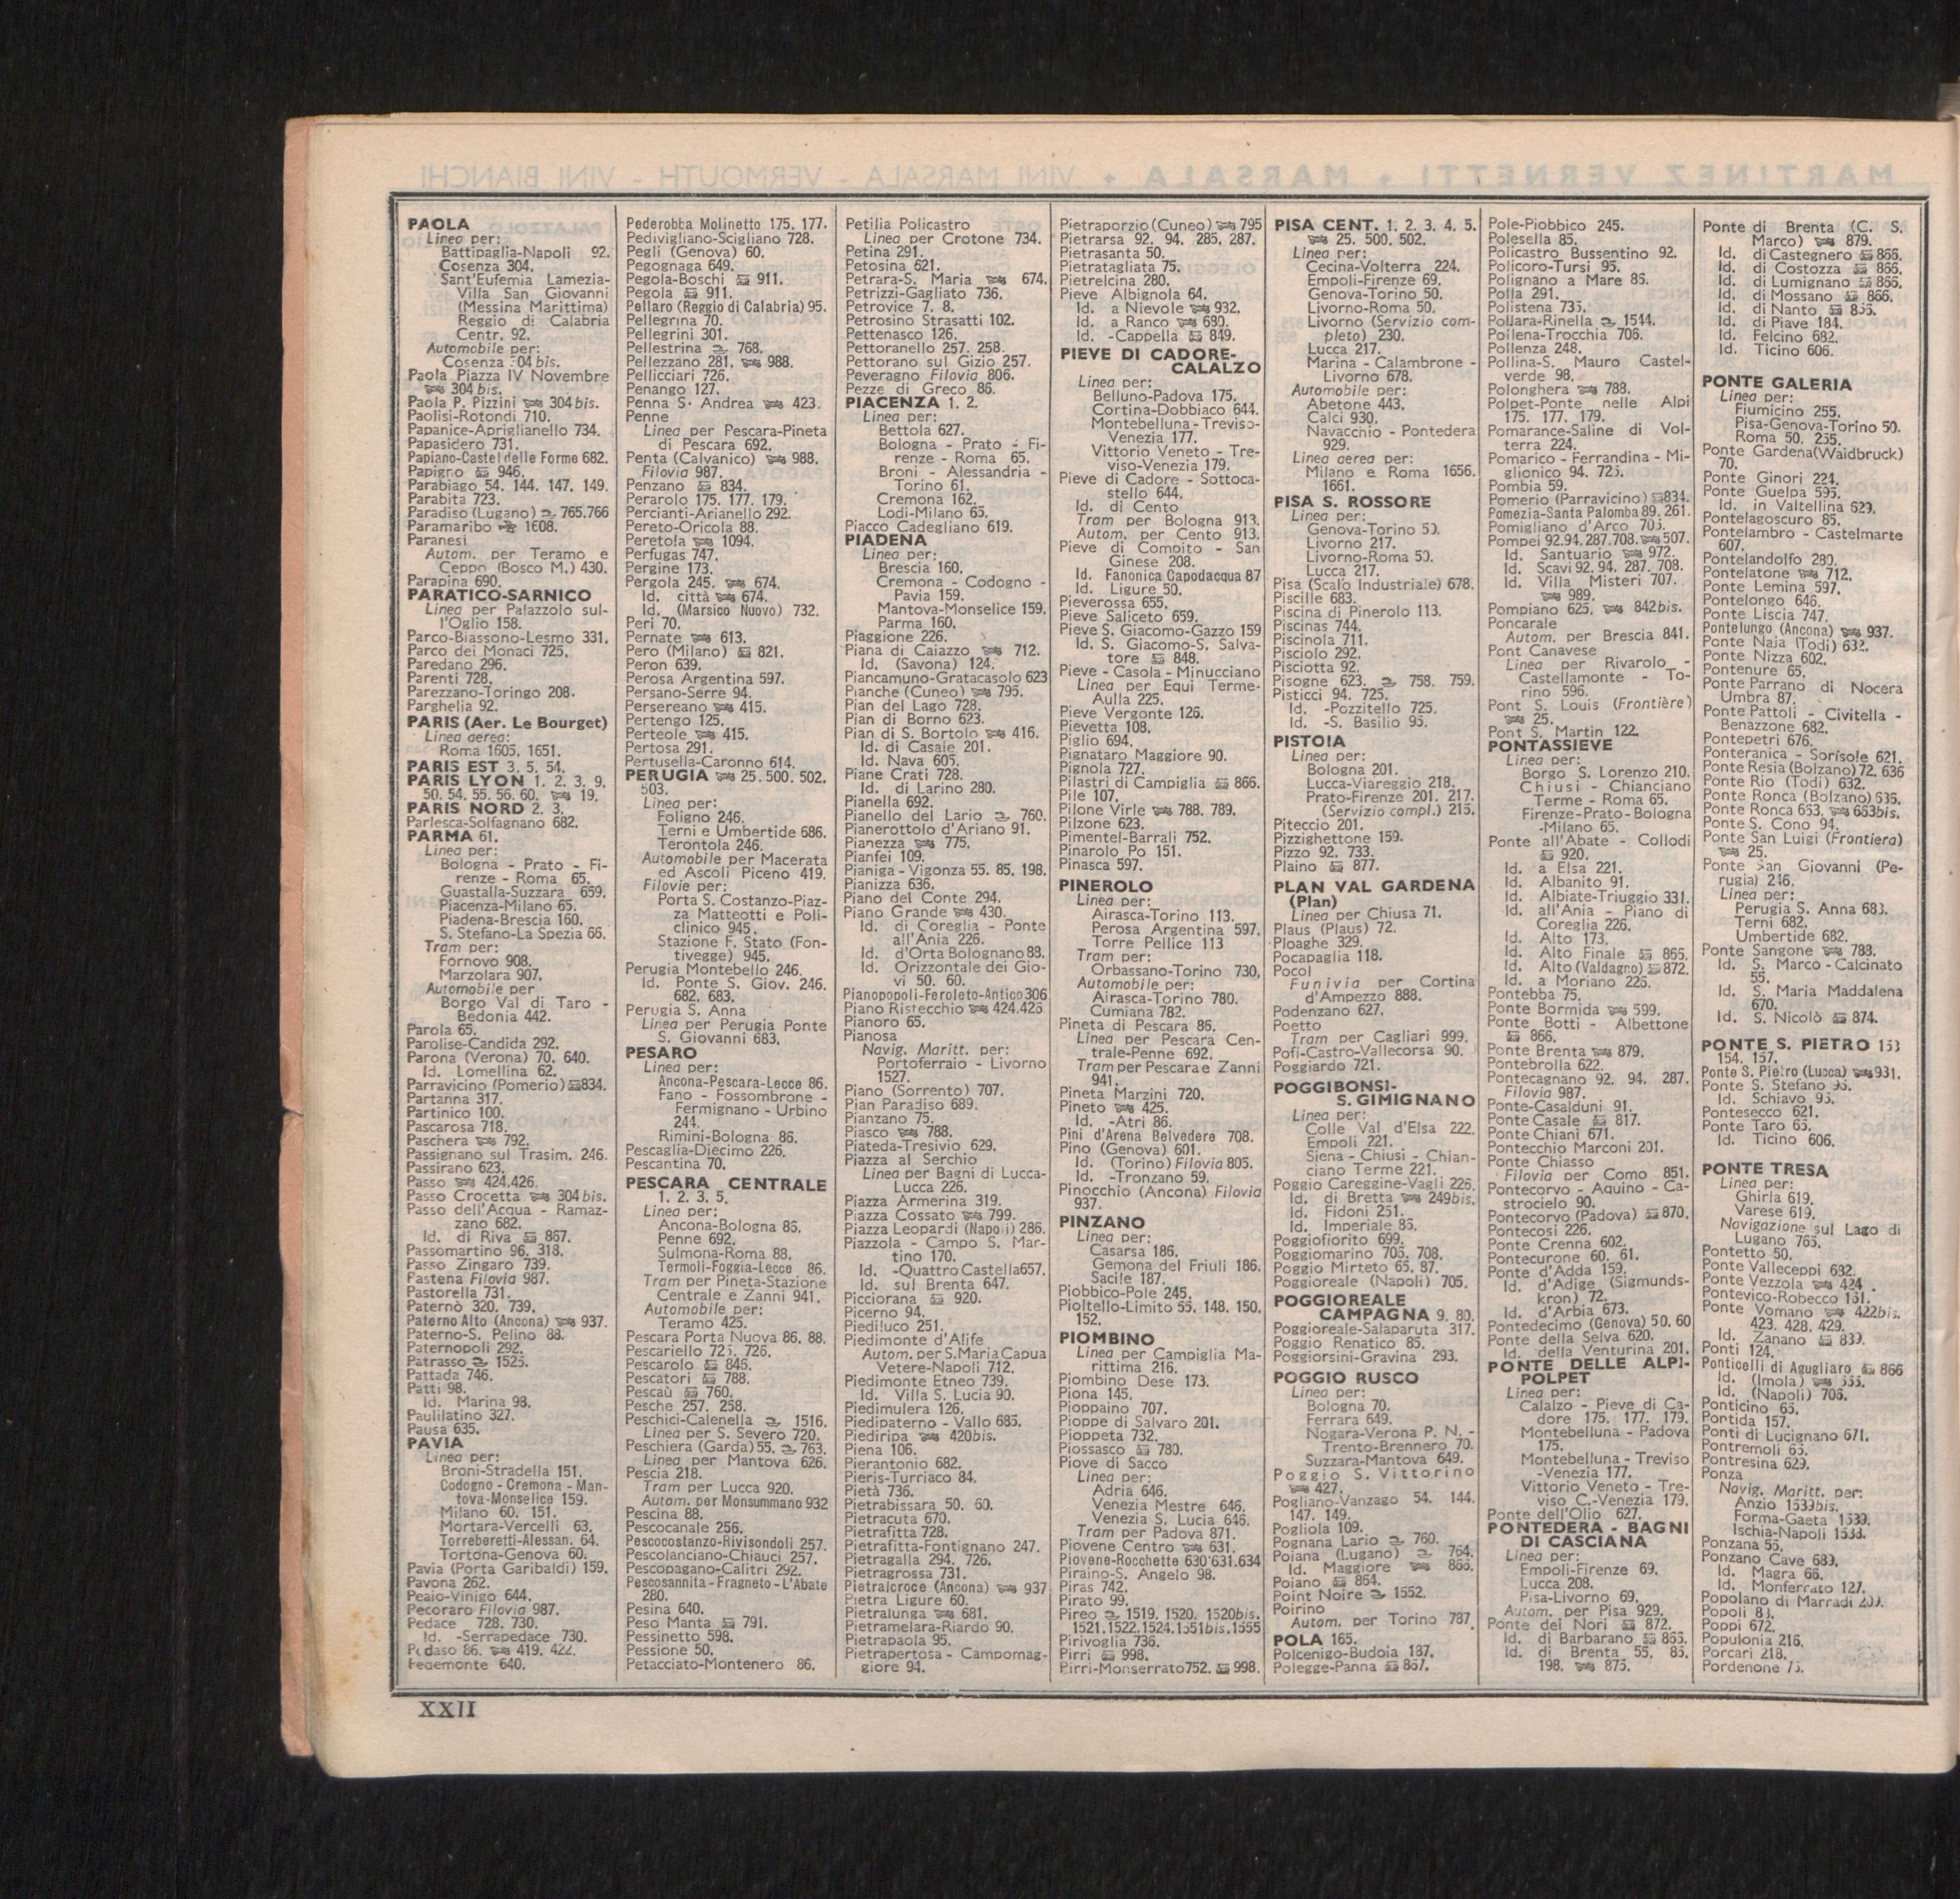 PAOLA
Linea per:
Battipaglia-Napoli 92.
Cosenza 304.
Sant'Eufemia Lamezia-
Villa San Giovanni
(Messina Marittima)
Reggio di Calabria
Centr. 92.
Automobile per:
Cosenza 304 bis.
Paola Piazza IV Novembre
304 bis.
Paola P. Pizzini 304 bis.
Paolisi-Rotondi 710.
Papanice-Apriglianello 734.
Papasidero 731.
Papiano-Castel delle Forme 682.
Papigno 946.
Parabiago 54. 144. 147. 149.
Parabita 723.
Paradiso (Lugano) 765.766
Paramaribo 1608.
Paranesi
Autom. per Teramo e
Ceppo (Bosco M.) 430.
Parapina 690.
PARATICO-SARNICO
Linea per Palazzolo sul-
l'Oglio 158.
Parco-Biassono-Lesmo 331.
Parco dei Monaci 725.
Paredano 296.
Parenti 728.
Parezzano-Toringo 208.
Parghelia 92.
PARIS (Aer. Le Bourget)
Linea aerea:
Roma 1605, 1651.
PARIS EST 3. 5. 54.
PARIS LYON 1. 2. 3. 9.
50. 54. 55. 56. 60. 19.
PARIS NORD 2. 3.
Parlesca-Solfagnano 682.
PARMA 61.
Linea per:
Bologna - Prato - Fi-
renze - Roma 65.
Guastalla-Suzzara 659.
Piacenza-Milano 65.
Piadena-Brescia 160.
S. Stefano-La Spezia 66.
Tram per:
Fornovo 908.
Marzolara 907.
Automobile per
Borgo Val di Taro -
Bedonia 442.
Parola 65.
Parolise-Candida 292.
Parona (Verona) 70. 640.
Id. Lomellina 62.
Parravicino (Pomerio) 834.
Partanna 317.
Partinico 100.
Pascarosa 718.
Paschera 792.
Passignano sul Trasim. 246.
Passirano 623.
Passo 424.426.
Passo Crocetta 304 bis.
Passo dell'Acqua - Ramaz-
zano 682.
Id. di Riva 867.
Passomartino 96. 318.
Passo Zingaro 739.
Pastena Filovia 987.
Pastorella 731.
Paternò 320. 739.
Paterno Alto (Ancona) 937.
Paterno-S. Pelino 88.
Paternopoli 292.
Patrasso 1525.
Pattada 746.
Patti 98.
Id. Marina 98.
Paulilatino 327.
Pausa 635.
PAVIA
Linea per:
Broni-Stradella 151.
Codogno - Cremona - Man-
tova-Monselice 159.
Milano 60. 151.
Mortara-Vercelli 63.
Torreberetti-Alessan. 64.
Tortona-Genova 60.
Pavia (Porta Garibaldi) 159.
Pavona 262.
Peaio-Vinigo 644.
Pecoraro Filovia 987.
Pedace 728. 730.
Id. -Serrapedace 730.
Pedaso 86. 419. 422.
Pedemonte 640.
Pederobba Molinetto 175. 177.
Pedivigliano-Scigliano 728.
Pegli (Genova) 60.
Pegognaga 649.
Pegola-Boschi 911.
Pegola 911.
Pellaro (Reggio di Calabria) 95.
Pellegrina 70.
Pellegrini 301.
Pellestrina 768.
Pellezzano 281. 988.
Pellicciari 726.
Penango 127.
Penna S. Andrea 423.
Penne
Linea per Pescara-Pineta
di Pescara 692.
Penta (Calvanico) 988.
Filovia 987.
Penzano 834.
Perarolo 175. 177. 179.
Percianti-Arianello 292.
Pereto-Oricola 88.
Peretola 1094.
Perfugas 747.
Pergine 173.
Pergola 245. 674.
Id. città 674.
Id. (Marsico Nuovo) 732.
Peri 70.
Pernate 613.
Pero (Milano) 821.
Peron 639.
Perosa Argentina 597.
Persano-Serre 94.
Persereano 415.
Pertengo 125.
Perteole 415.
Pertosa 291.
Pertusella-Caronno 614.
PERUGIA 25. 500. 502.
503.
Linea per:
Foligno 246.
Terni e Umbertide 686.
Terontola 246.
Automobile per Macerata
ed Ascoli Piceno 419.
Filovie per:
Porta S. Costanzo-Piaz-
za Matteotti e Poli-
clinico 945.
Stazione F. Stato (Fon-
tivegge) 945.
Perugia Montebello 246.
Id. Ponte S. Giov. 246.
682. 683.
Perugia S. Anna
Linea per Perugia Ponte
S. Giovanni 683.
PESARO
Linea per:
Ancona-Pescara-Lecce 86.
Fano - Fossombrone -
Fermignano - Urbino
244.
Rimini-Bologna 86.
Pescaglia-Diecimo 226.
Pescantina 70.
PESCARA CENTRALE
1. 2. 3. 5.
Linea per:
Ancona-Bologna 86.
Penne 692.
Sulmona-Roma 88.
Termoli-Foggia-Lecce 86.
Tram per Pineta-Stazione
Centrale e Zanni 941.
Automobile per:
Teramo 425.
Pescara Porta Nuova 86. 88.
Pescariello 725. 726.
Pescarolo 846.
Pescatori 788.
Pescaù 760.
Pesche 257. 258.
Peschici-Calenella 1516.
Linea per S. Severo 720.
Peschiera (Garda) 55. 763.
Linea per Mantova 626.
Pescia 218.
Tram per Lucca 920.
Autom. per Monsummano 932
Pescina 88.
Pescocanale 256.
Pescocostanzo-Rivisondoli 257.
Pescolanciano-Chiauci 257.
Pescopagano-Calitri 292.
Pescosannita - Fragneto - L'Abate
280.
Pesina 640.
Peso Manta 791.
Pessinetto 598.
Pessione 50.
Petacciato-Montenero 86.
Petilia Policastro
Linea per Crotone 734.
Petina 291.
Petosina 621.
Petrara-S. Maria 674.
Petrizzi-Gagliato 736.
Petrovice 7. 8.
Petrosino Strasatti 102.
Pettenasco 126.
Pettoranello 257. 258.
Pettorano sul Gizio 257.
Peveragno Filovia 806.
Pezze di Greco 86.
PIACENZA 1. 2.
Linea per:
Bettola 627.
Bologna - Prato - Fi-
renze - Roma 65.
Broni - Alessandria -
Torino 61.
Cremona 162.
Lodi-Milano 65.
Piacco Cadegliano 619.
PIADENA
Linea per:
Brescia 160.
Cremona - Codogno -
Pavia 159.
Mantova-Monselice 159.
Parma 160.
Piaggione 226.
Piana di Caiazzo 712.
Id. (Savona) 124.
Piancamuno-Gratacasolo 623
Pianche (Cuneo) 795.
Pian del Lago 728.
Pian di Borno 623.
Pian di S. Bortolo 416.
Id. di Casale 201.
Id. Nava 605.
Piane Crati 728.
Id. di Larino 280.
Pianella 692.
Pianello del Lario 760.
Pianerottolo d'Ariano 91.
Pianezza 775.
Pianfei 109.
Pianiga - Vigonza 55. 85. 198.
Pianizza 636.
Piano del Conte 294.
Piano Grande 430.
Id. di Coreglia - Ponte
all'Ania 226.
Id. d'Orta Bolognano 88.
Id. Orizzontale dei Gio-
vi 50. 60.
Pianopopoli-Feroleto-Antico 306
Piano Ristecchio 424.426
Pianoro 65.
Pianosa
Navig. Maritt. per:
Portoferraio - Livorno
1527.
Piano (Sorrento) 707.
Pian Paradiso 689.
Pianzano 75.
Piasco 788.
Piateda-Tresivio 629.
Piazza al Serchio
Linea per Bagni di Lucca-
Lucca 226.
Piazza Armerina 319.
Piazza Cossato 799.
Piazza Leopardi (Napoli) 286.
Piazzola - Campo S. Mar-
tino 170.
Id. -Quattro Castella 657.
Id. sul Brenta 647.
Picciorana 920.
Picerno 94.
Piediluco 251.
Piedimonte d'Alife
Autom. per S. Maria Capua
Vetere-Napoli 712.
Piedimonte Etneo 739.
Id. Villa S. Lucia 90.
Piedimulera 126.
Piedipaterno - Vallo 685.
Piediripa 420bis.
Piena 106.
Pierantonio 682.
Pieris-Turriaco 84.
Pietà 736.
Pietrabissara 50. 60.
Pietracuta 670.
Pietrafitta 728.
Pietrafitta-Fontignano 247.
Pietragalla 294. 726.
Pietragrossa 731.
Pietralcroce (Ancona) 937
Pietra Ligure 60.
Pietralunga 681.
Pietramelara-Riardo 90.
Pietrapaola 95.
Pietrapertosa - Campomag-
giore 94.
Pietraporzio (Cuneo) 795
Pietrarsa 92. 94. 285. 287.
Pietrasanta 50.
Pietratagliata 75.
Pietrelcina 280.
Pieve Albignola 64.
Id. a Nievole 932.
Id. a Ranco 680.
Id. -Cappella 849.
PIEVE DI CADORE-
CALALZO
Linea per:
Belluno-Padova 175.
Cortina-Dobbiaco 644.
Montebelluna-Treviso-
Venezia 177.
Vittorio Veneto - Tre-
viso-Venezia 179.
Pieve di Cadore - Sottoca-
stello 644.
Id. di Cento
Tram per Bologna 913.
Autom. per Cento 913.
Pieve di Compito - San
Ginese 208.
Id. Fanonica Capodacqua 87
Id. Ligure 50.
Pieverossa 655.
Pieve Saliceto 659.
Pieve S. Giacomo-Gazzo 159
Id. S. Giacomo-S. Salva-
tore 848.
Pieve - Casola - Minucciano
Linea per Equi Terme-
Aulla 225.
Pieve Vergonte 126.
Pievetta 108.
Piglio 694.
Pignataro Maggiore 90.
Pignola 727.
Pilastri di Campiglia 866.
Pile 107.
Pilone Virle 788. 789.
Pilzone 623.
Pimentel-Barrali 752.
Pinarolo Po 151.
Pinasca 597.
PINEROLO
Linea per:
Airasca-Torino 113.
Perosa Argentina 597.
Torre Pellice 113
Tram per:
Orbassano-Torino 730.
Automobile per:
Airasca-Torino 780.
Cumiana 782.
Pineta di Pescara 86.
Linea per Pescara Cen-
trale-Penne 692.
Tram per Pescara e Zanni
941.
Pineta Marzini 720.
Pineto 425.
Id. -Atri 86.
Pini d'Arena Belvedere 708.
Pino (Genova) 601.
Id. (Torino) Filovia 805.
Id. -Tronzano 59.
Pinocchio (Ancona) Filovia
937.
PINZANO
Linea per:
Casarsa 186.
Gemona del Friuli 186.
Sacile 187.
Piobbico-Pole 245.
Pioltello-Limito 55. 148. 150.
152.
PIOMBINO
Linea per Campiglia Ma-
rittima 216.
Piombino Dese 173.
Piona 145.
Pioppaino 707.
Pioppe di Salvaro 201.
Pioppeta 732.
Piossasco 780.
Piove di Sacco
Linea per:
Adria 646.
Venezia Mestre 646.
Venezia S. Lucia 646.
Tram per Padova 871.
Piovene Centro 631.
Piovene-Rocchette 630 631.634
Piraino-S. Angelo 98.
Piras 742.
Pirato 99.
Pireo 1519. 1520. 1520bis.
1521.1522.1524.1551bis.1555
Pirivoglia 736.
Pirri 998.
Pirri-Monserrato 752. 998.
PISA CENT. 1. 2. 3. 4. 5.
25. 500. 502.
Linea per:
Cecina-Volterra 224.
Empoli-Firenze 69.
Genova-Torino 50.
Livorno-Roma 50.
Livorno (Servizio com-
pleto) 230.
Lucca 217.
Marina - Calambrone -
Livorno 678.
Automobile per:
Abetone 443.
Calci 930.
Navacchio - Pontedera
929.
Linea aerea per:
Milano e Roma 1656.
1661.
PISA S. ROSSORE
Linea per:
Genova-Torino 50.
Livorno 217.
Livorno-Roma 50.
Lucca 217.
Pisa (Scalo Industriale) 678.
Piscille 683.
Piscina di Pinerolo 113.
Piscinas 744.
Piscinola 711.
Pisciolo 292.
Pisciotta 92.
Pisogne 623. 758. 759.
Pisticci 94. 725.
Id. -Pozzitello 725.
Id. -S. Basilio 95.
PISTOIA
Linea per:
Bologna 201.
Lucca-Viareggio 218.
Prato-Firenze 201. 217.
(Servizio compl.) 215.
Piteccio 201.
Pizzighettone 159.
Pizzo 92. 733.
Plaino 877.
PLAN VAL GARDENA
(Plan)
Linea per Chiusa 71.
Plaus (Plaus) 72.
Ploaghe 329.
Pocapaglia 118.
Pocol
Funivia per Cortina
d'Ampezzo 888.
Podenzano 627.
Poetto
Tram per Cagliari 999.
Pofi-Castro-Vallecorsa 90.
Poggiardo 721.
POGGIBONSI-
S. GIMIGNANO
Linea per:
Colle Val d'Elsa 222.
Empoli 221.
Siena - Chiusi - Chian-
ciano Terme 221.
Poggio Careggine-Vagli 226.
Id. di Bretta 249bis.
Id. Fidoni 251.
Id. Imperiale 86.
Poggiofiorito 699.
Poggiomarino 705. 708.
Poggio Mirteto 65. 87.
Poggioreale (Napoli) 705.
POGGIOREALE
CAMPAGNA 9. 80.
Poggioreale-Salaparuta 317.
Poggio Renatico 85.
Poggiorsini-Gravina 293.
POGGIO RUSCO
Linea per:
Bologna 70.
Ferrara 649.
Nogara-Verona P. N. -
Trento-Brennero 70.
Suzzara-Mantova 649.
Poggio S. Vittorino
427.
Pogliano-Vanzago 54. 144.
147. 149.
Pogliola 109.
Pognana Lario 760.
Poiana (Lugano) 764.
Id. Maggiore 866.
Poiano 864.
Point Noire 1552.
Poirino
Autom. per Torino 787.
POLA 165.
Polcenigo-Budoia 187.
Polegge-Panna 867.
Pole-Piobbico 245.
Polesella 85.
Policastro Bussentino 92.
Policoro-Tursi 95.
Polignano a Mare 86.
Polla 291.
Polistena 735.
Pollara-Rinella 1544.
Pollena-Trocchia 706.
Pollenza 248.
Pollina-S. Mauro Castel-
verde 98.
Polonghera 788.
Polpet-Ponte nelle Alpi
175. 177. 179.
Pomarance-Saline di Vol-
terra 224.
Pomarico - Ferrandina - Mi-
glionico 94. 725.
Pombia 59.
Pomerio (Parravicino) 834.
Pomezia-Santa Palomba 89. 261.
Pomigliano d'Arco 705.
Pompei 92.94.287.708. 507.
Id. Santuario 972.
Id. Scavi 92. 94. 287. 708.
Id. Villa Misteri 707.
989.
Pompiano 625. 842bis.
Poncarale
Autom. per Brescia 841.
Pont Canavese
Linea per Rivarolo -
Castellamonte - To-
rino 596.
Pont S. Louis (Frontière)
25.
Pont S. Martin 122.
PONTASSIEVE
Linea per:
Borgo S. Lorenzo 210.
Chiusi - Chianciano
Terme - Roma 65.
Firenze-Prato-Bologna
-Milano 65.
Ponte all'Abate - Collodi
920.
Id. a Elsa 221.
Id. Albanito 91.
Id. Albiate-Triuggio 331.
Id. all'Ania - Piano di
Coreglia 226.
Id. Alto 173.
Id. Alto Finale 865.
Id. Alto (Valdagno) 872.
Id. a Moriano 226.
Pontebba 75.
Ponte Bormida 599.
Ponte Botti - Albettone
866.
Ponte Brenta 879.
Pontebrolla 622.
Pontecagnano 92. 94. 287.
Filovia 987.
Ponte-Casalduni 91.
Ponte Casale 817.
Ponte Chiani 671.
Pontecchio Marconi 201.
Ponte Chiasso
Filovia per Como 851.
Pontecorvo - Aquino - Ca-
strocielo 90.
Pontecorvo (Padova) 870.
Pontecosi 226.
Ponte Crenna 602.
Pontecurone 60. 61.
Ponte d'Adda 159.
Id. d'Adige (Sigmunds-
kron) 72.
Id. d'Arbia 673.
Pontedecimo (Genova) 50. 60
Ponte della Selva 620.
Id. della Venturina 201.
PONTE DELLE ALPI-
POLPET
Linea per:
Calalzo - Pieve di Ca-
dore 175. 177. 179.
Montebelluna - Padova
175.
Montebelluna - Treviso
-Venezia 177.
Vittorio Veneto - Tre-
viso C.-Venezia 179.
Ponte dell'Olio 627.
PONTEDERA - BAGNI
DI CASCIANA
Linea per:
Empoli-Firenze 69.
Lucca 208.
Pisa-Livorno 69.
Autom. per Pisa 929.
Ponte dei Nori 872.
Id. di Barbarano 865.
Id. di Brenta 55. 85.
198. 875.
Ponte di Brenta (C. S.
Marco) 879.
Id. di Castegnero 866.
Id. di Costozza 866.
Id. di Lumignano 866.
Id. di Mossano 866.
Id. di Nanto 866.
Id. di Piave 184.
Id. Felcino 682.
Id. Ticino 606.
PONTE GALERIA
Linea per:
Fiumicino 255.
Pisa-Genova-Torino 50.
Roma 50. 255.
Ponte Gardena (Waidbruck)
70.
Ponte Ginori 224.
Ponte Guelpa 595.
Id. in Valtellina 629.
Pontelagoscuro 85.
Pontelambro - Castelmarte
607.
Pontelandolfo 280.
Pontelatone 712.
Ponte Lemina 597.
Pontelongo 646.
Ponte Liscia 747.
Pontelungo (Ancona) 937.
Ponte Naia (Todi) 632.
Ponte Nizza 602.
Pontenure 65.
Ponte Parrano di Nocera
Umbra 87.
Ponte Pattoli - Civitella -
Benazzone 682.
Pontepetri 676.
Ponteranica - Sorisole 621.
Ponte Resia (Bolzano) 72. 636
Ponte Rio (Todi) 632.
Ponte Ronca (Bolzano) 636.
Ponte Ronca 653. 653bis.
Ponte S. Cono 94.
Ponte San Luigi (Frontiera)
25.
Ponte San Giovanni (Pe-
rugia) 246.
Linea per:
Perugia S. Anna 683.
Terni 682.
Umbertide 682.
Ponte Sangone 788.
Id. S. Marco - Calcinato
55.
Id. S. Maria Maddalena
670.
Id. S. Nicolò 874.
PONTE S. PIETRO 153
154. 157.
Ponte S. Pietro (Lucca) 931.
Ponte S. Stefano 95.
Id. Schiavo 95.
Pontesecco 621.
Ponte Taro 65.
Id. Ticino 606.
PONTE TRESA
Linea per:
Ghirla 619.
Varese 619.
Navigazione sul Lago di
Lugano 765.
Pontetto 50.
Ponte Valleceppi 682.
Ponte Vezzola 424.
Pontevico-Robecco 161.
Ponte Vomano 422bis.
423. 428. 429.
Id. Zanano 839.
Ponti 124.
Ponticelli di Agugliaro 866
Id. (Imola)
Id. (Napoli) 706.
Ponticino 65.
Pontida 157.
Ponti di Lucignano 671.
Pontremoli 66.
Pontresina 629.
Ponza
Navig. Maritt. per:
Anzio 1539bis.
Forma-Gaeta 1539.
Ischia-Napoli 1538.
Ponzana 55.
Ponzano Cave 689.
Id. Magra 66.
Id. Monferrato 127.
Popolano di Marradi 209.
Popoli 88.
Poppi 672.
Populonia 216.
Porcari 218.
Pordenone 75.
XXII